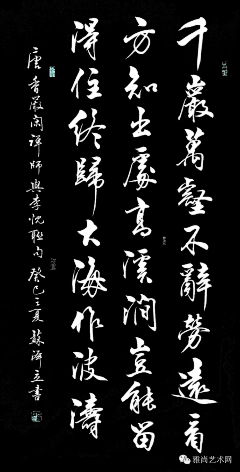 千巖萬壑不辭勞遠看
方知出處高溪澗豈能留
得住終歸大海作波濤
唐香嚴閑禪師與李忱聯句癸巳之夏蘇澤立書
雅尚艺术网